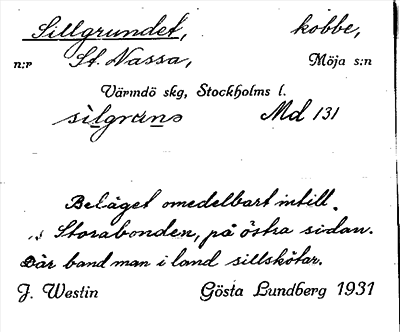 Sillgrundet, kobbe,
n:r St. Nassa, Möja s:n
Värmdö skg, Stockholms l.
silgränə Md 131
Beläget omedelbart intill
Storabonden, på östra sidan.
Där band man i land sillskötar.
J. Westin Gösta Lundberg 1931